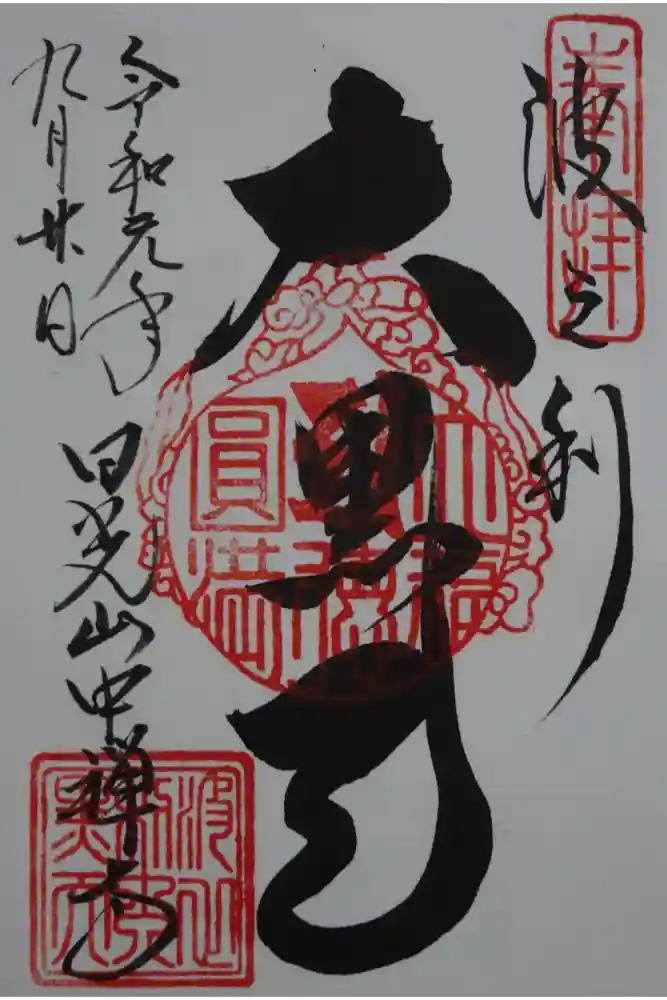 奉拝
波之利
大黒天
令和元年
九月廿日
日光山中禅寺